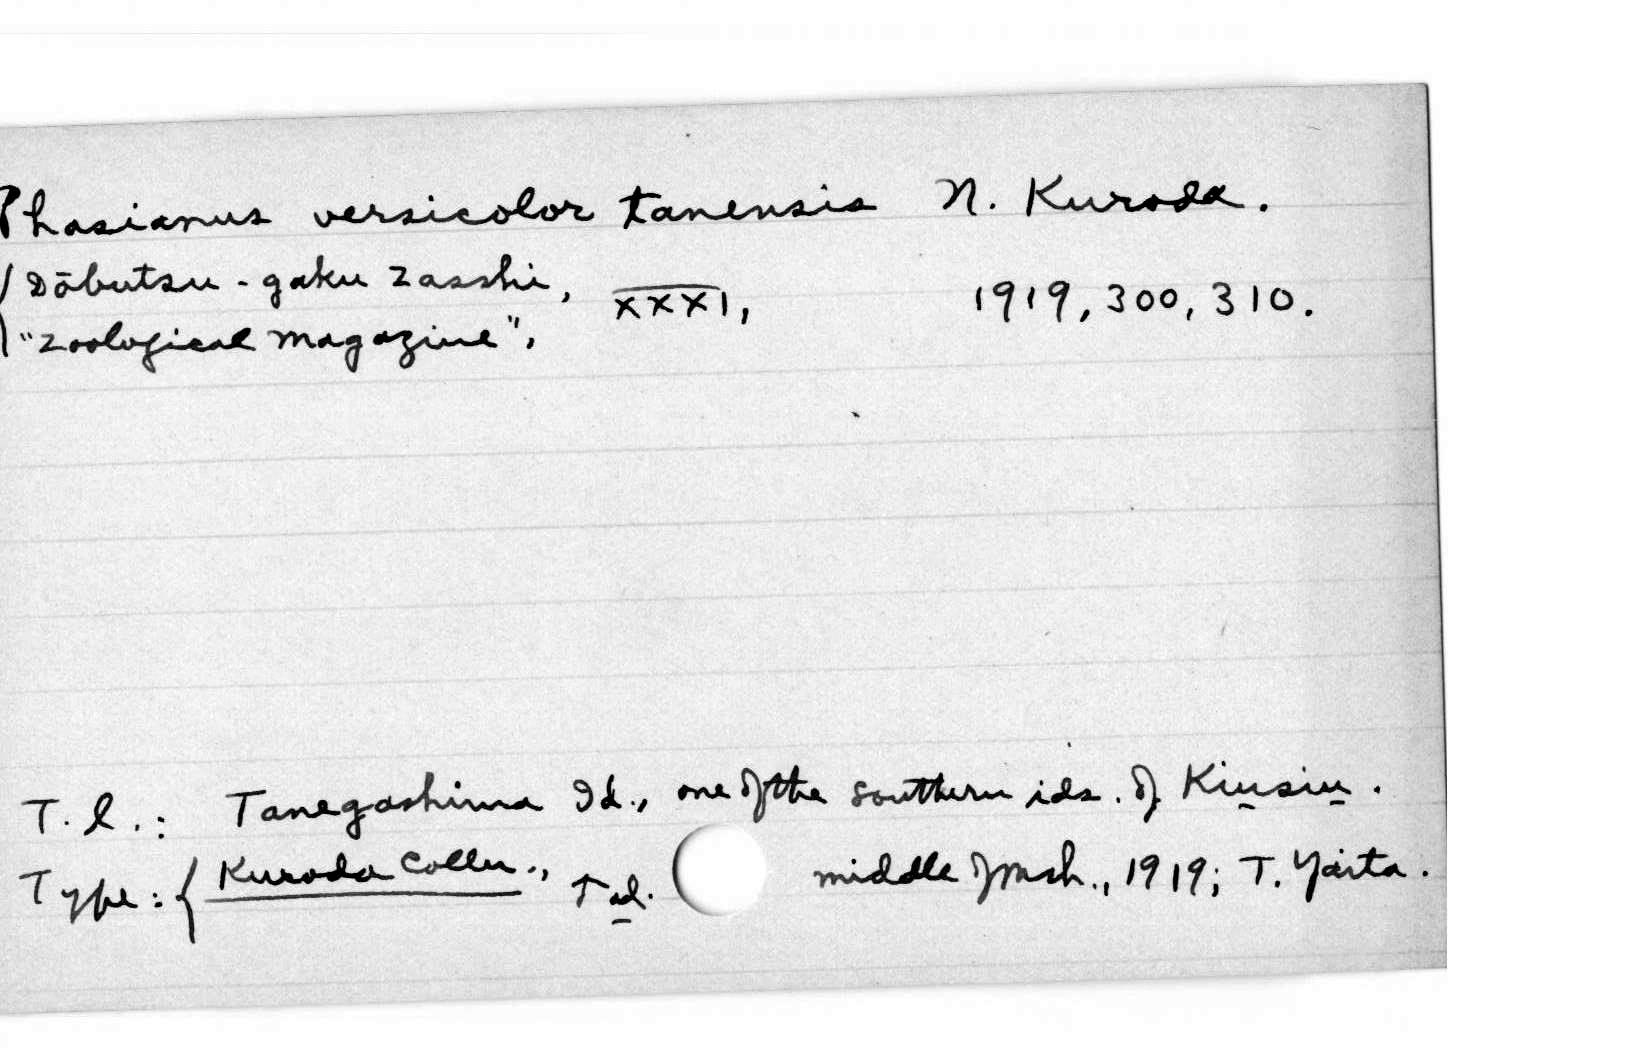 Phasianus versicolor tanensis N. Kuroda.
Dōbutsu-gaku Zasshi, XXXI, 1919, 300, 310.
"Zoological Magazine",
T.l.: Tanegashima Id., one of the southern ids. of Kiusiu.
Type: { Kuroda Colln., ad. middle of Mch., 1919; T. Yaita.